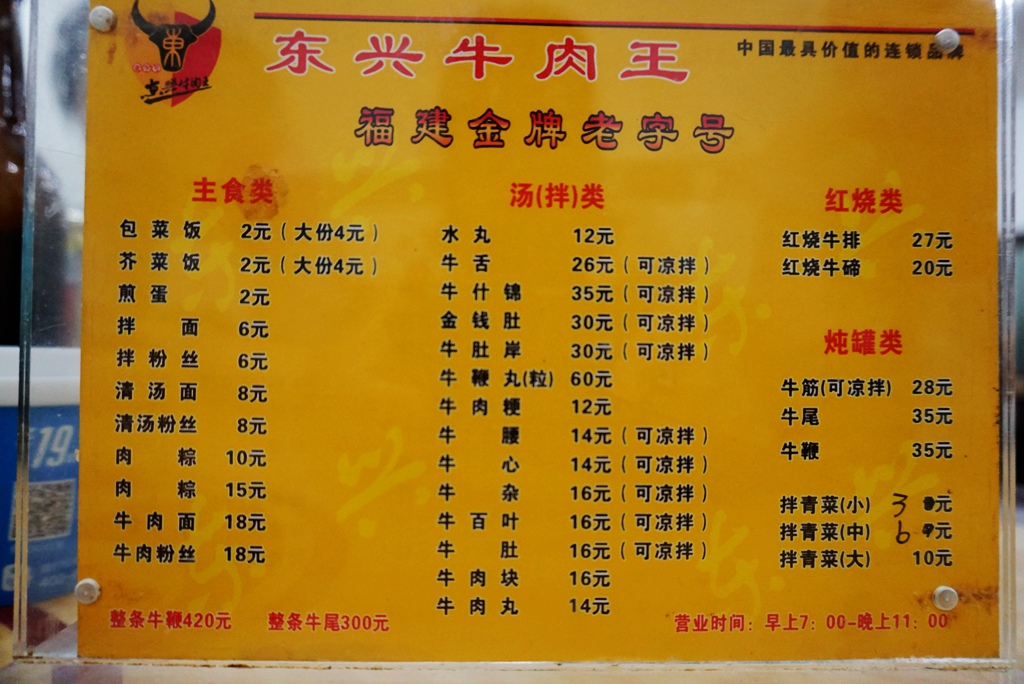 東
东兴牛肉王
中国最具价值的连锁品牌
福建金牌老字号
主食类
包菜饭 2元(大份4元)
芥菜饭 2元(大份4元)
煎蛋 2元
拌面 6元
拌粉丝 6元
清汤面 8元
清汤粉丝 8元
肉粽 10元
肉粽 15元
牛肉面 18元
牛肉粉丝 18元
汤(拌)类
水丸 12元
牛舌 26元(可凉拌)
牛什锦 35元(可凉拌)
金钱肚 30元(可凉拌)
牛肚岸 30元(可凉拌)
牛鞭丸(粒) 60元
牛肉粳 12元
牛腰 14元(可凉拌)
牛心 14元(可凉拌)
牛杂 16元(可凉拌)
牛百叶 16元(可凉拌)
牛肚 16元(可凉拌)
牛肉块 16元
牛肉丸 14元
红烧类
红烧牛排 27元
红烧牛碲 20元
炖罐类
牛筋(可凉拌) 28元
牛尾 35元
牛鞭 35元
拌青菜(小) 3元
拌青菜(中) 6元
拌青菜(大) 10元
整条牛鞭420元 整条牛尾300元
营业时间：早上7：00-晚上11：00
19.